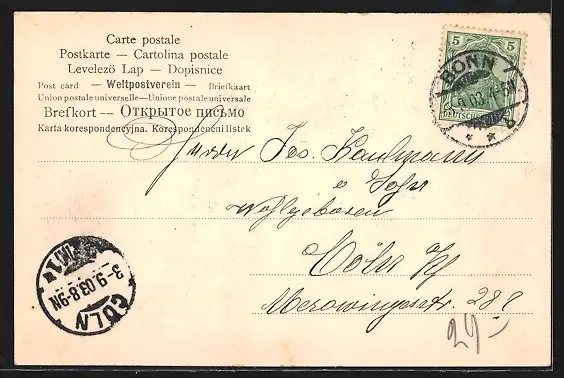 Carte postale
Postkarte — Cartolina postale
Levelezö Lap — Dopisnice
Post card — Weltpostverein — Briefkaart
Union postale universelle—Unione postale universale
Brefkort — Открытое письмо
Karta korespondencyjna. Korespondenční listek
5 5
DEUTSCHES
BONN
9.03.7-8N
Herrn Jos. Kaufmann
& Sohn
Wohlgeboren
Cöln
Merowingerstr. 28
CÖLN
3-9.03.8-9N
29-